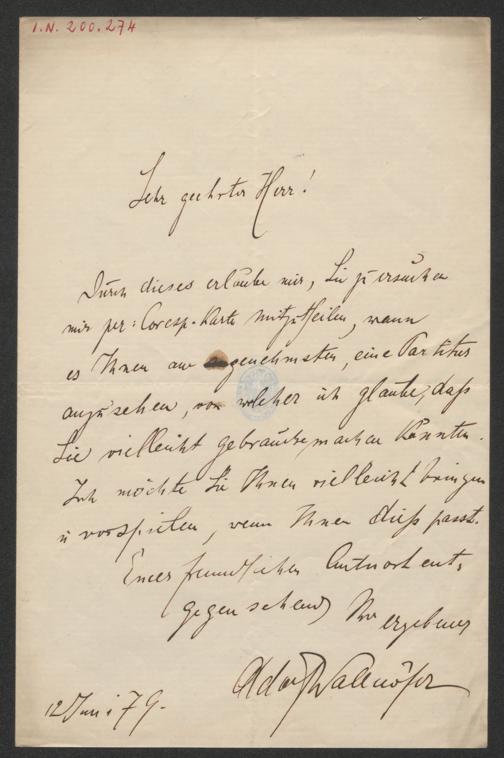 I.N. 200.274
Sehr geehrter Herr!
Durch dieses erlaube mir, Sie zu ersuchen
mir per: Coresp.-Karte mitzutheilen, wann
es Ihnen am angenehmsten, eine Partitur
anzusehen, von welcher ich glaube, daß
Sie vielleicht gebrauch machen könnten.
Ich möchte Sie Ihnen vielleicht bringen
u vorspielen, wenn Ihnen dieß passt.
Einer freundlichen Antwort ent,
gegen sehend Ihr ergebener
Adolf Wallnöfer
12 Juni 79.